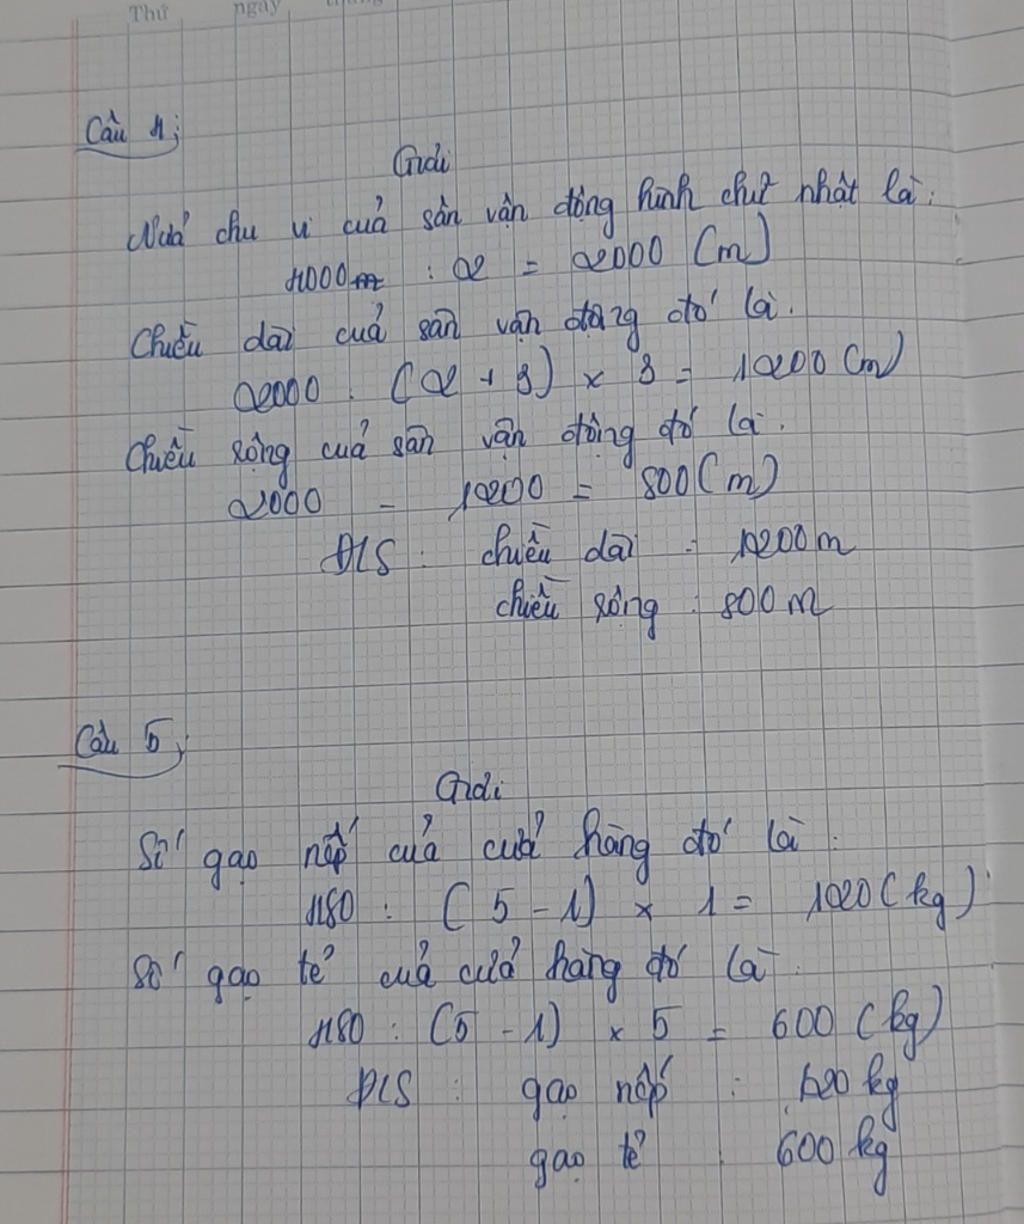 Thứ ngày tháng
Câu 4:
Giải
Nửa chu vi của sân vận động hình chữ nhật là:
4000m : 2 = 2000 (m)
Chiều dài của sân vận động đó là:
2000 : (2 + 3) x 3 = 1200 (m)
Chiều rộng của sân vận động đó là:
2000 - 1200 = 800 (m)
Đ/S: chiều dài: 1200m
chiều rộng: 800m
Câu 5:
Giải
Số gạo nếp của cửa hàng đó là:
480 : (5 - 1) x 1 = 120 (kg)
Số gạo tẻ của cửa hàng đó là:
480 : (5 - 1) x 5 = 600 (kg)
Đ/S: gạo nếp: 120 kg
gạo tẻ: 600 kg